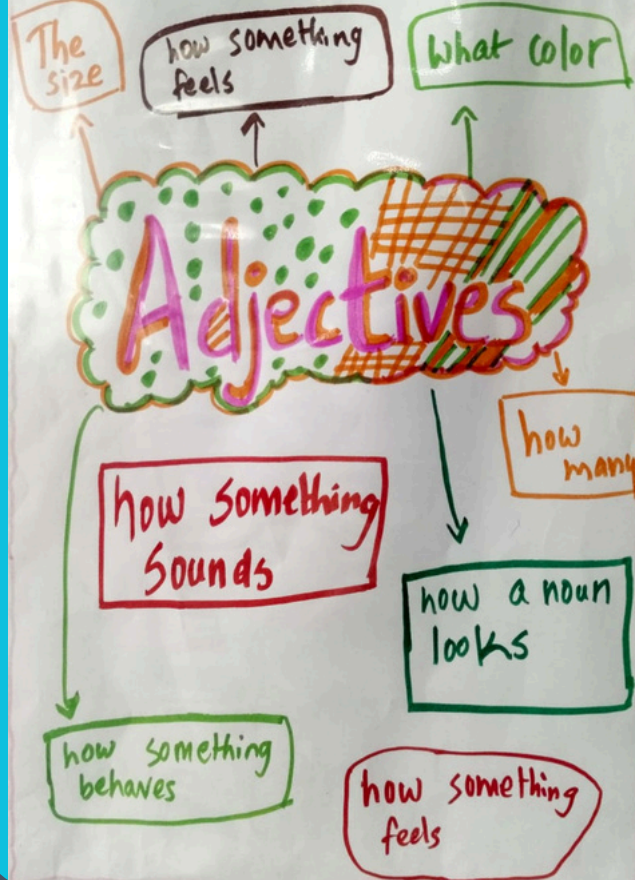 The
size
how something
feels
what color
Adjectives
how
many
how something
sounds
how a noun
looks
how something
behaves
how something
feels